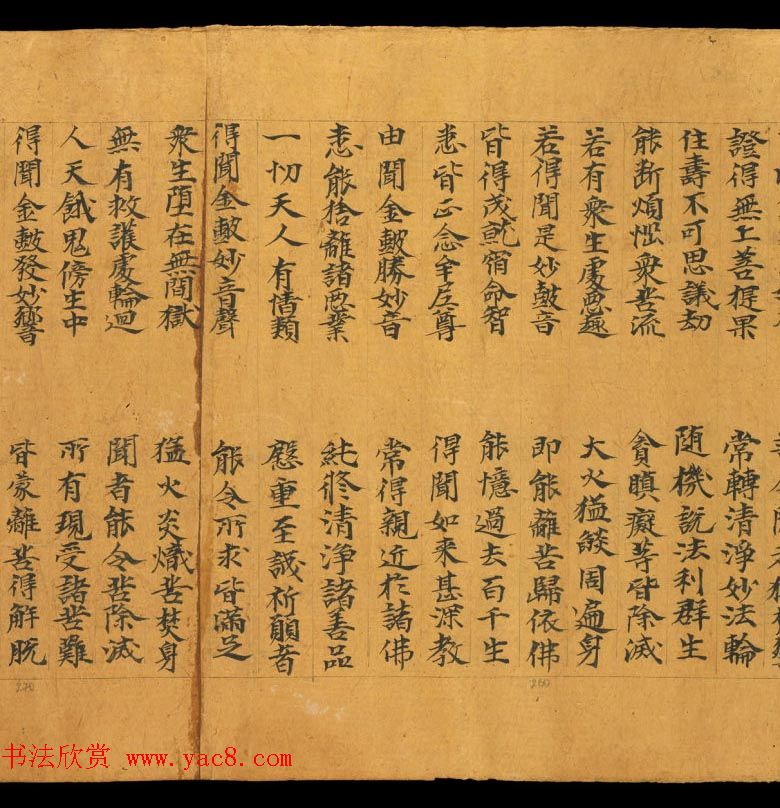 證得無上菩提果 常轉清淨妙法輪
住壽不可思議劫 随機說法利群生
能断煩惱衆苦流 貪瞋癡等皆除滅
若有衆生處惡趣 大火猛焰周遍身
若得聞是妙鼓音 即能離苦歸依佛
皆得成就宿命智 能憶過去百千生
悉皆正念牟尼尊 得聞如来甚深教
由聞金鼓勝妙音 常得親近於諸佛
悉能捨離諸惡業 純修清淨諸善品
一切天人有情類 慇重至誠祈願者
得聞金鼓妙音聲 能令所求皆滿足
衆生墮在無間獄 猛火炎熾苦焚身
無有救護處輪迴 聞者能令苦除滅
人天餓鬼傍生中 所有現受諸苦難
得聞金鼓發妙響 皆蒙離苦得解脫
260
270
书法欣赏 www.yac8.com